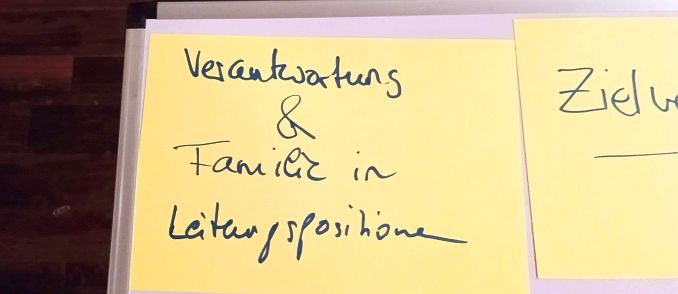 Verantwortung
&
Familie in
Leitungspositionen
Zielv